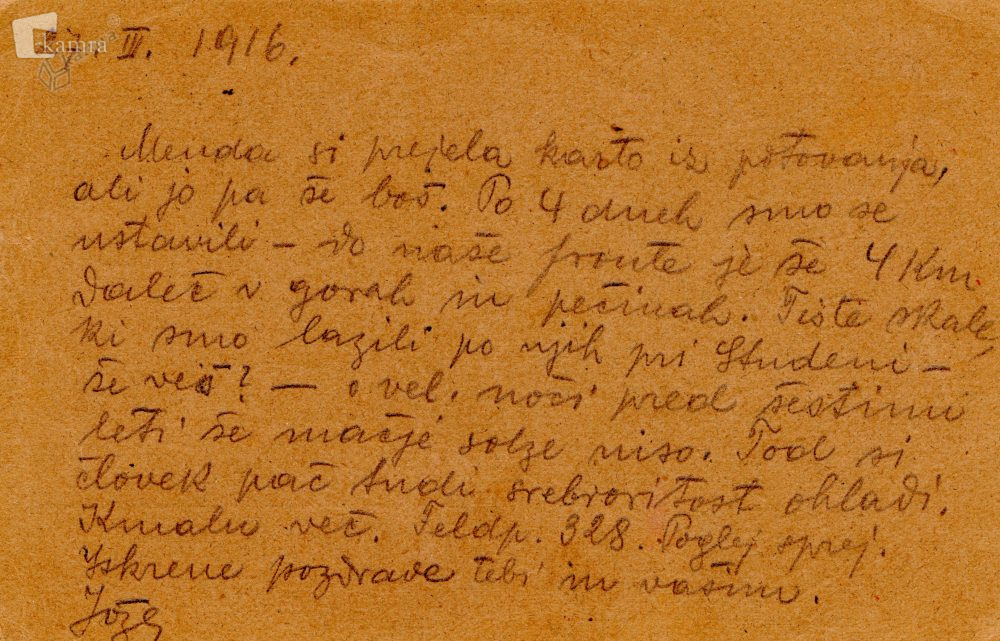 kamra
III. 1916.
Menda si prejela karto iz potovanja,
ali jo pa še boš. Po 4 dneh smo se
ustavili – do naše fronte je še 4 Km.
daleč v gorah in pečinah. Tiste skale,
ki smo lazili po njih pri Studeni –
še veš? – o vel. noči pred šestimi
leti še mačje solze niso. Tod si
človek pač tudi srebroritost ohladi.
Kmalu več. Feldp. 328. Poglej sprej.
Iskrene pozdrave tebi in vašim.
Jože